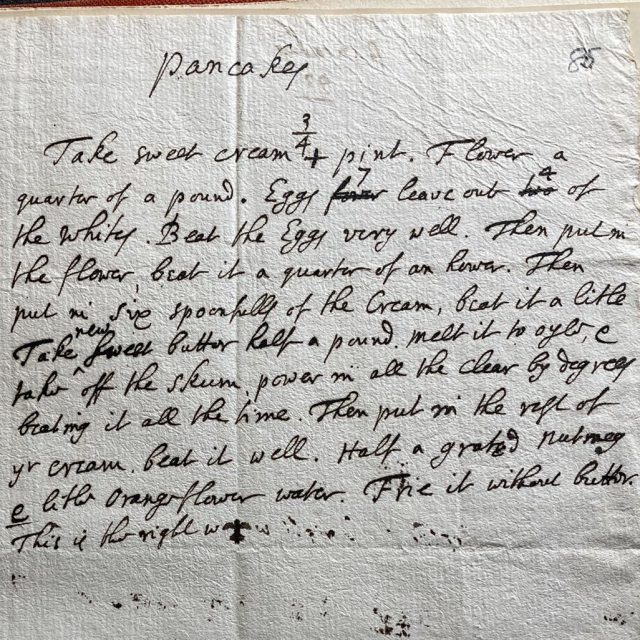 Pancakes
85
Take sweet cream 3/4 + pint. Flower a
quarter of a pound. Eggs four 7 leave out two 4 of
the whites. Beat the Eggs very well. Then put in
the flower, beat it a quarter of an hower. Then
put in six spoonfulls of the Cream, beat it a litle
Take new sweet butter half a pound. melt it to oyle, e
take off the skum, power in all the clear by degrees
beating it all the time. Then put in the rest of
yr cream. beat it well. Half a grated nutmeg
e litle Orangeflower water. Frie it without butter.
This is the right way